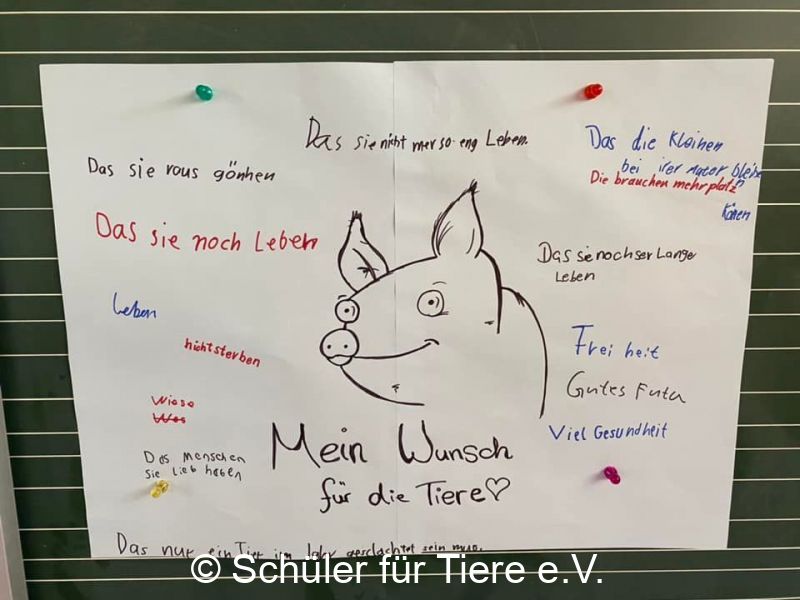 Das sie nicht mer so eng Leben.
Das die Kleinen
bei irer muter bleiben
können
Die brauchen mehr platz
Das sie raus gönnen
Das sie noch Leben
Das sie noch ser Lange
Leben
Leben
nicht sterben
Frei heit
Gutes Futer
Wiese
Was
Viel Gesundheit
Das menschen
sie Lieb haben
Mein Wunsch
für die Tiere♡
Das nur ein Tier im Jahr geschlachtet sein muss.
© Schüler für Tiere e.V.